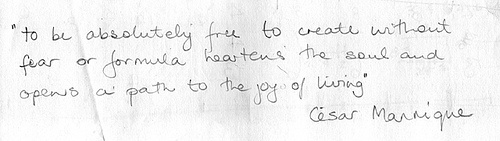 "to be absolutely free to create without
fear or formula heartens the soul and
opens a path to the joy of living"
César Manrique